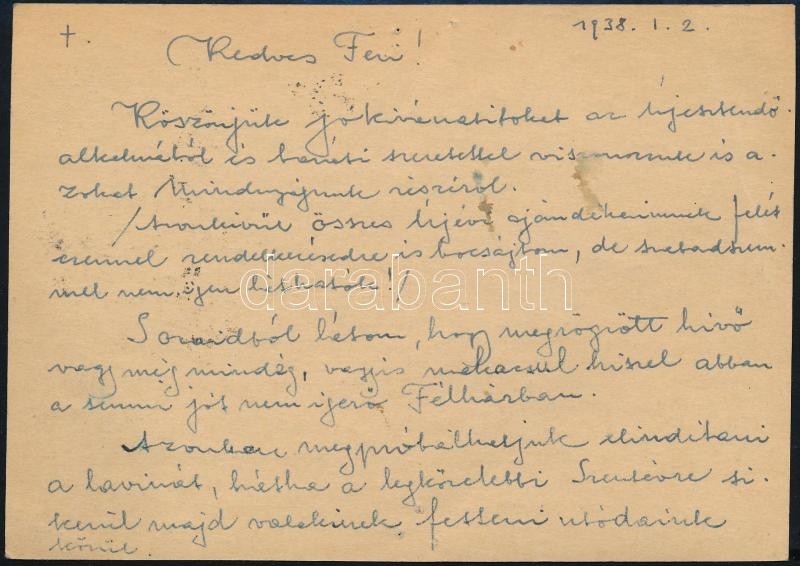 +.
1938. I. 2.
Kedves Feri!
Köszönjük jókívánatitoket az újesztendő
alkalmából és baráti szeretettel viszonozzuk is a-
zokat Mindnyájunk részéről.
/Azonkívül összes újévi ajándékaimnak felét
ezennel rendelkezésedre is bocsájtom, de szabadszem-
mel nem igen láthatók!/
darabanth
Soraidból látom, hogy megrögzött hívő
vagy még mindég, vagyis makacsul hiszel abban
a semmi jót nem igérő Félhárban.
Azonban megpróbálhatjuk elindítani
a lavinát, hátha a legközelebbi Szentévre si-
kerül majd valakinek festeni utódaink
közül.